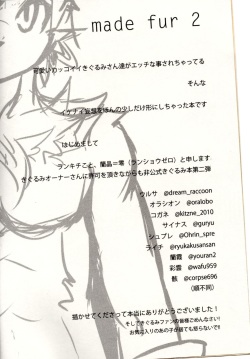 made fur 2
可愛いカッコイイきぐるみさん達がエッチな事されちゃってる
そんな
イケナイ妄想をほんの少しだけ形にしちゃった本です
はじめまして
ランキチこと、蘭晶=零（ランショウゼロ）と申します
きぐるみオーナーさんに許可を頂きながらも非公式きぐるみ本第二弾
ウルサ @dream_raccoon
オラシオン @oralobo
コガネ @kitzne_2010
サイナス @guryu
シュプレ @Ohrin_spre
ライチ @ryukakusansan
蘭霞 @youran2
彩雲 @wafu959
骸 @corpse696
（順不同）
描かせてくださって本当にありがとうございました！
そしてきぐるみファンの皆様ごめんなさい！
お気に入りのあの子が居ても怒らないで!!